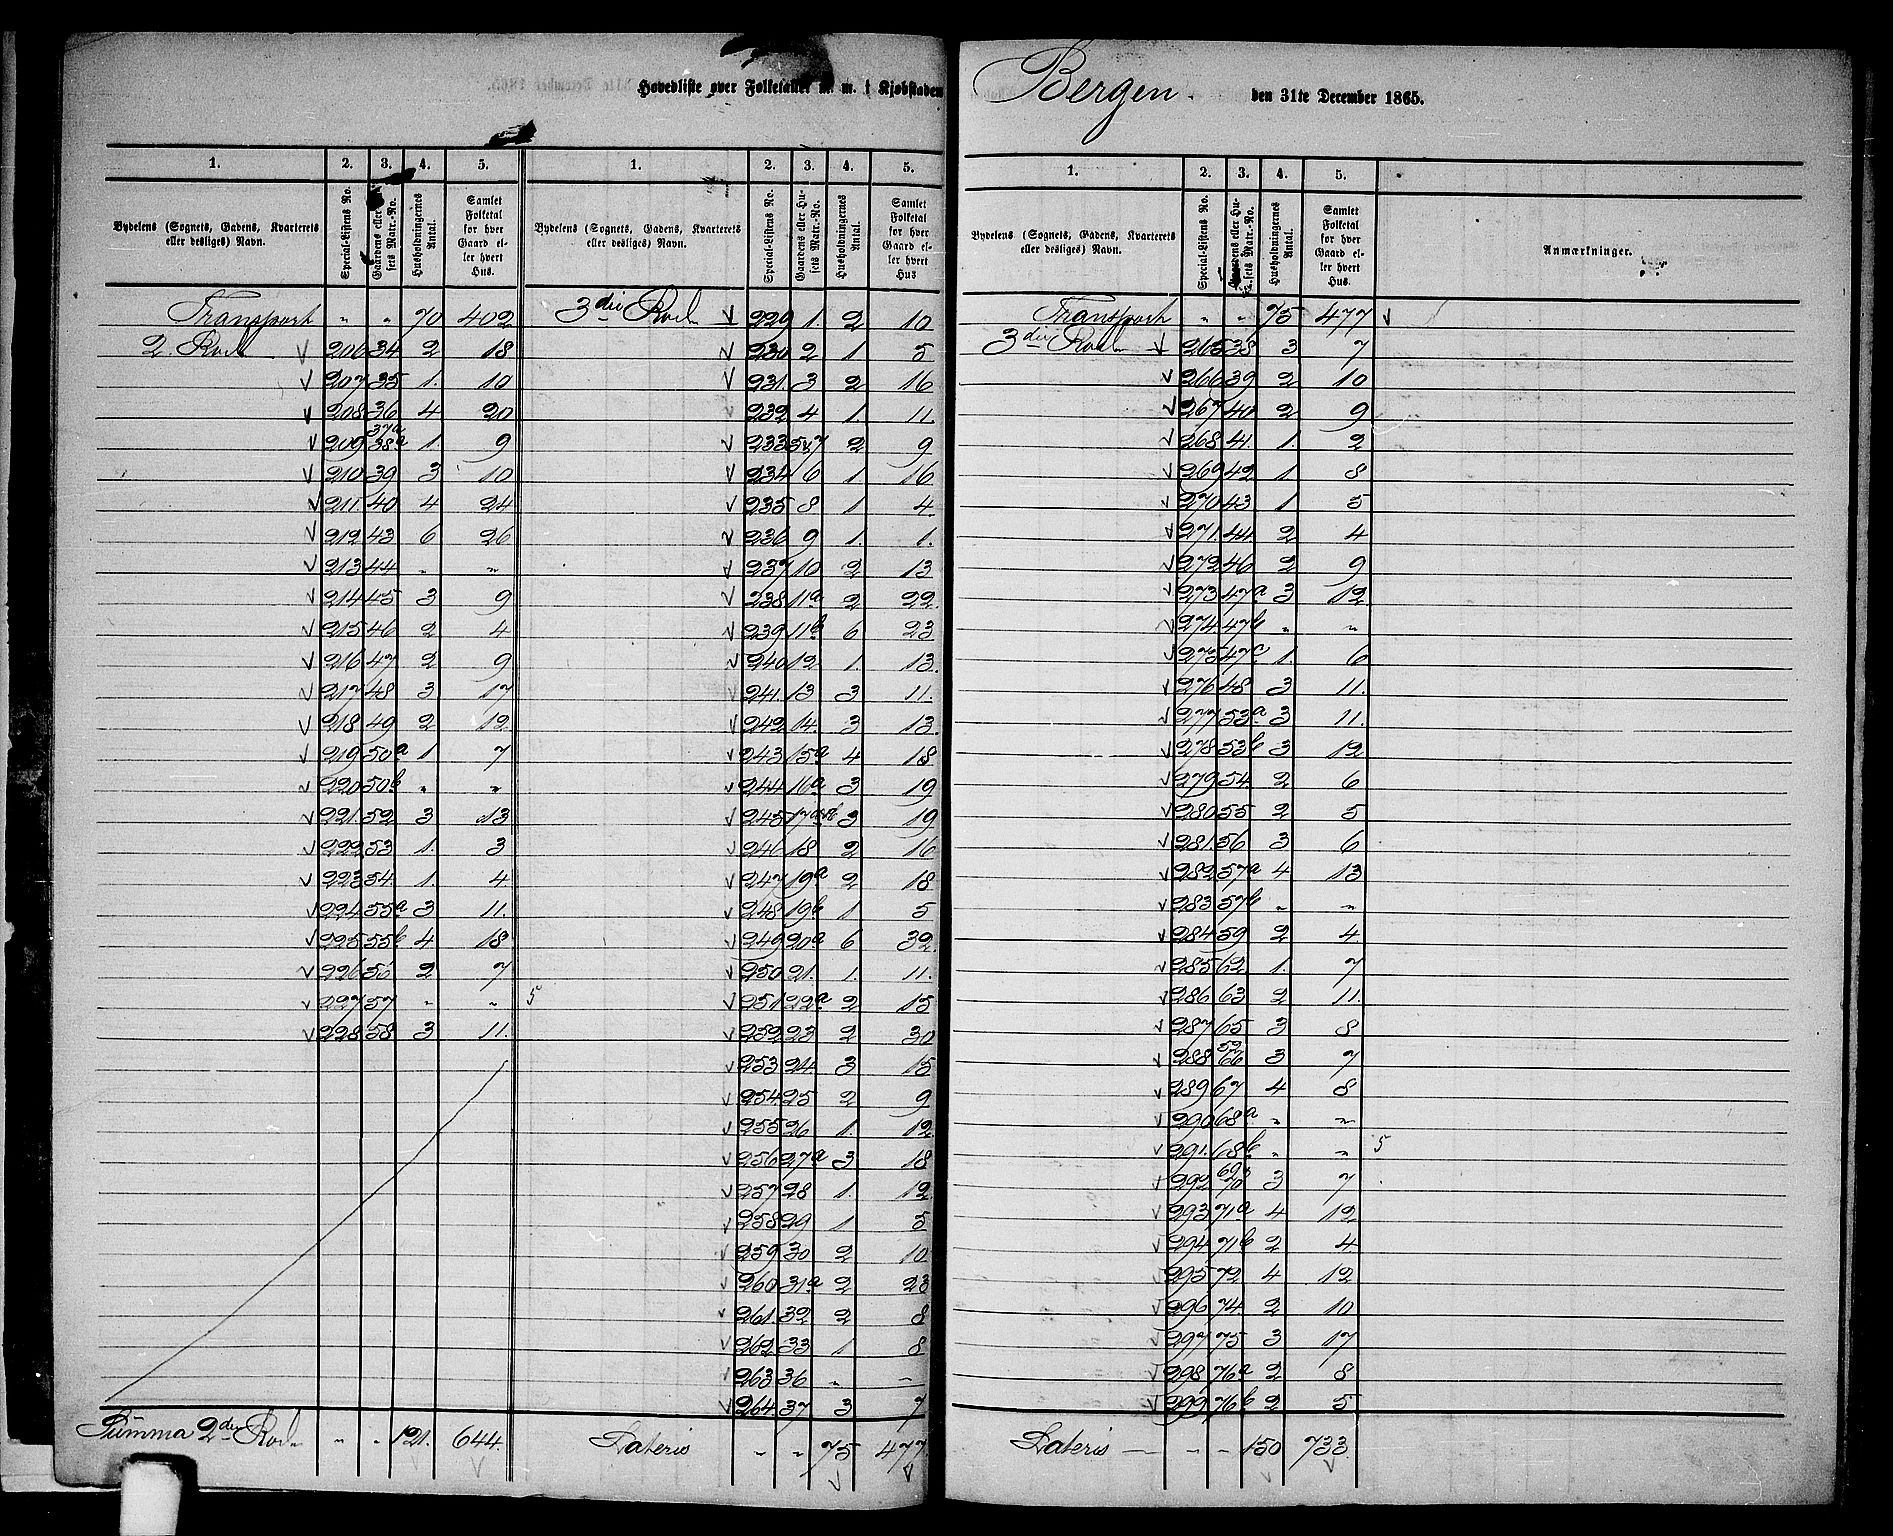 Hovedliste over Folketallet m. m. i Kjøbstaden Bergen. den 31te December 1865.
1. 2. 3. 4. 5.
Bydelens (Sognets, Gadens, Kvarterets eller desliges) Navn. Special-Listens No. Gaardens eller Husets Matr.-No. Husholdningernes Antal. Samlet Folketal for hver Gaard eller hvert Hus.
Transport " " 70 402
2. Rode 206 34 2 18
207 35 1. 10
208 36 4 20
209 37a 38a 1. 9
210 39 3 10
211. 40 4 24
212 43 6 26
213 44 " "
214 45 3 9
215 46 2 4
216 47 2 9
217 48 3 17
218 49 2 12
219 50a 1 7
220 50b " "
221. 52 3 13
222 53 1. 3
223 54. 1. 4
224 55a 3 11.
225 55b 4 18
226 56 2 7
227 57 " " 5
228 58 3 11.
Summa 2den Rode " " 121. 644.
1. 2. 3. 4. 5.
Bydelens (Sognets, Gadens, Kvarterets eller desliges) Navn. Special-Listens No. Gaardens eller Husets Matr.-No. Husholdningernes Antal. Samlet Folketal for hver Gaard eller hvert Hus
3die Rode 229 1. 2 10
230 2 1 5
231. 3 2 16
232 4 1. 11.
233 5&7 2 9
234 6 1 16
235 8 1 4.
236 9 1. 1.
237 10 2 13
238 11a 2 22
239 11b 6 23
240 12 1. 13.
241. 13 3 11.
242 14. 3 13.
243 15a 4 18
244 16a 3 19
245 17a&b 3 19
246 18 2 16
247 19a 2 18
248 19b 1 5
249 20a 6 32
250 21. 1. 11.
251 22a 2 15
252 23 2 30
253 24. 3 15
254 25 2 9
255 26 1. 12
256 27a 3 18
257 28 1. 12
258 29 1 5
259 30 2 10
260 31a 2 23
261. 32 2 8
262 33 1 8
263 36 " "
264. 37 3 7
Lateris " " 75 477
1. 2. 3. 4. 5.
Bydelens (Sognets, Gadens, Kvarterets eller desliges) Navn. Special-Listens No. Gaardens eller Husets Matr.-No. Husholdningernes Antal. Samlet Folketal for hver Gaard eller hvert Hus. Anmærkninger.
Transport " " 75 477
3die Rode 265 38 3 7
266 39 2 10
267 40 2 9
268 41. 1. 2
269 42 1 8
270 43 1 5
271. 44. 2 4
272 46 2 9
273 47a 3 12
274 47b " "
275 47c 1. 6
276 48 3 11.
277 53a 3 11.
278 53b 3 12
279 54. 2 6
280 55 2 5
281 56 3 6
282 57a 4 13
283 57b " "
284 59 2 4
285 62 1. 7
286 63 2 11.
287 65 3 8
288 66 3 7
289 67 4 8
290 68a " "
291. 68b " " 5
292 69& 70 3 7
293 71a 4 12
294 71b 2 4
295 72 4 12
296 74. 2 10
297 75 3 17
298 76a 2 8
299 76b 2 5
Lateris " " 150 733.